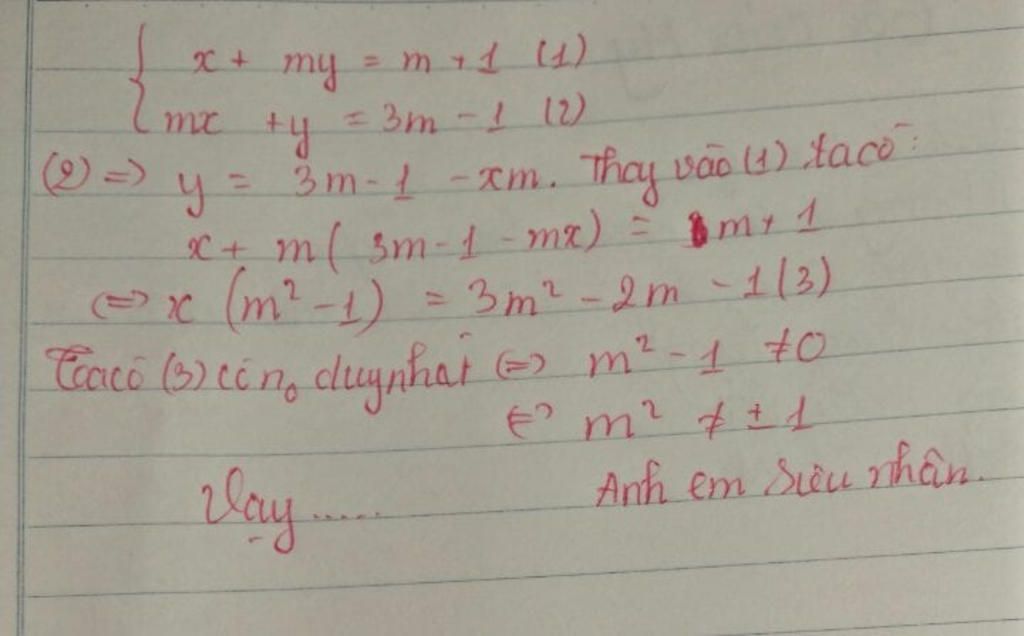 x + my = m + 1 (1)
mx + y = 3m - 1 (2)
(2) => y = 3m - 1 - xm. Thay vào (1) ta có:
x + m( 3m - 1 - mx) = m + 1
<=> x (m² - 1) = 3m² - 2m - 1 (3)
Ta có (3) có n₀ duy nhất <=> m² - 1 ≠ 0
<=> m² ≠ ± 1
Vậy.....
Anh em siêu nhân.